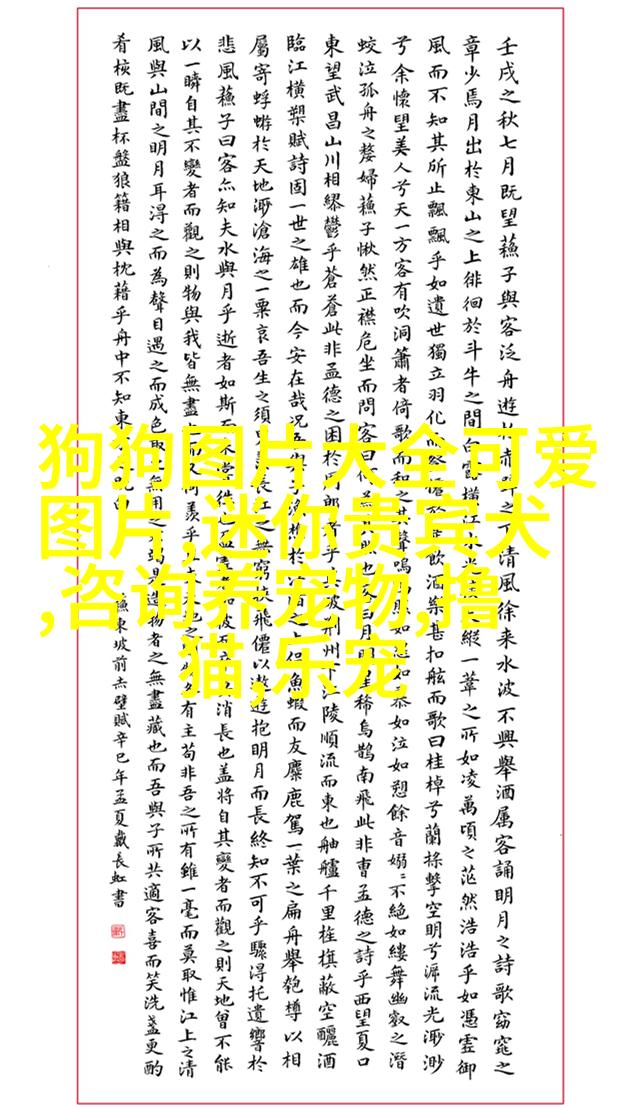 壬戌之秋七月既望蘓子與客泛舟遊於赤壁之下清風徐来水波不興舉酒属客誦明月之詩歌窈窕之
章少焉月出於東山之上徘徊於斗牛之間白露橫江水光縱一葦之所如凌萬頃之茫然浩浩乎如憑虛御
風而不知其所止飄飄乎如遺世獨立羽化而僊於飲酒樂甚扣舷而歌曰桂棹兮蘭槳擊空明兮泝流光渺渺
兮余懷望美人兮天一方客有吹洞簫者倚歌而和之其聲嗚然如如慕如泣如愬餘音嫋〻不絕如縷舞幽壑之潛
蛟泣孤舟之嫠婦蘓子愀然正襟危坐而問客曰何為其也客曰月明星稀烏鵲南飛此非曹孟德之詩乎西望夏口
東望武昌山川相繆鬱乎蒼蒼此非孟德之困於周郎者乎其破荊州下江陵順流而東也舳艫千里旌旗蔽空釃酒
臨江橫槊賦詩固一世之雄也而今安在哉况吾與子漁樵於之上侣魚蝦而友麋鹿駕一葉之扁舟舉匏樽以相
屬寄蜉蝣於天地渺滄海之一粟哀吾生之須羨長江之無窮挾飛僊以遨遊抱明月而長終知不可乎驟得托遺響於
悲風蘓子曰客亦知夫水與月乎逝者如斯而未嘗往也盈虛者如彼而消長也盖將自其變者而觀之則天地曾不能
以一瞬自其不變者而觀之則物與我皆無盡也而又何羨乎且夫天地之物各有主苟非吾之所有雖一毫而莫取惟江上之清
風與山間之明月耳淂之而為聲目遇之而成色取之無用之不竭是造物者之無盡藏也而吾與子所共適客喜而笑洗盞更酌
肴核既盡杯盤狼籍相與枕藉乎舟中不知東既白
蘓東坡前赤壁賦辛巳年孟夏戴長虹書
狗狗图片大全可爱
图片,迷你贵宾犬
,咨询养宠物,撸
猫,乐宠